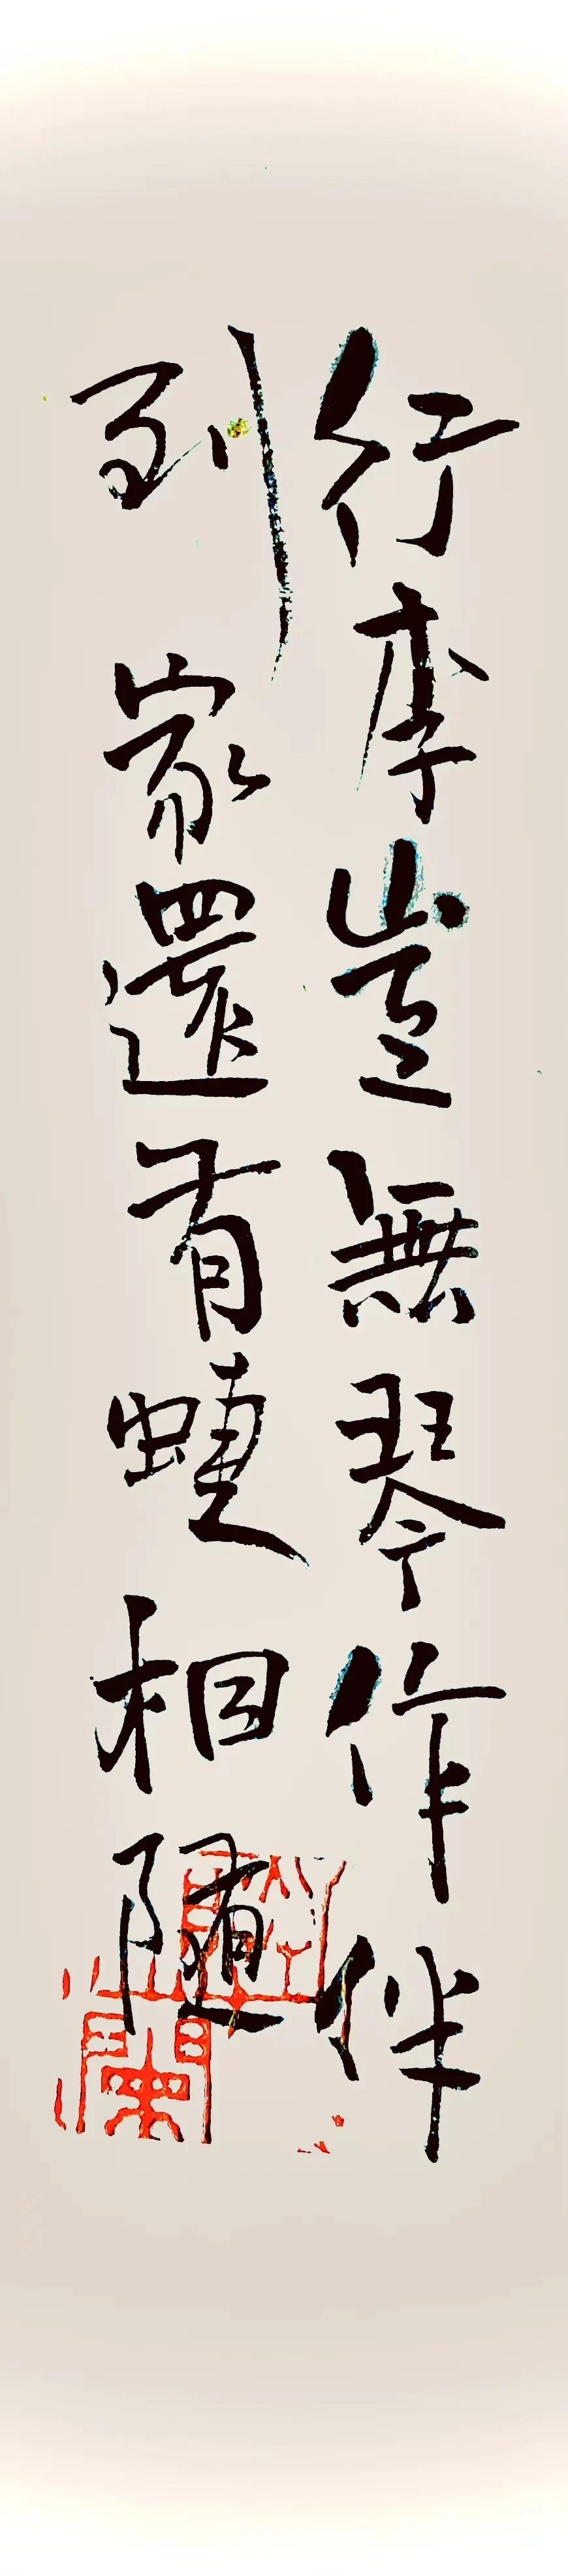 行李豈無琴作伴
到家還有蜨相隨